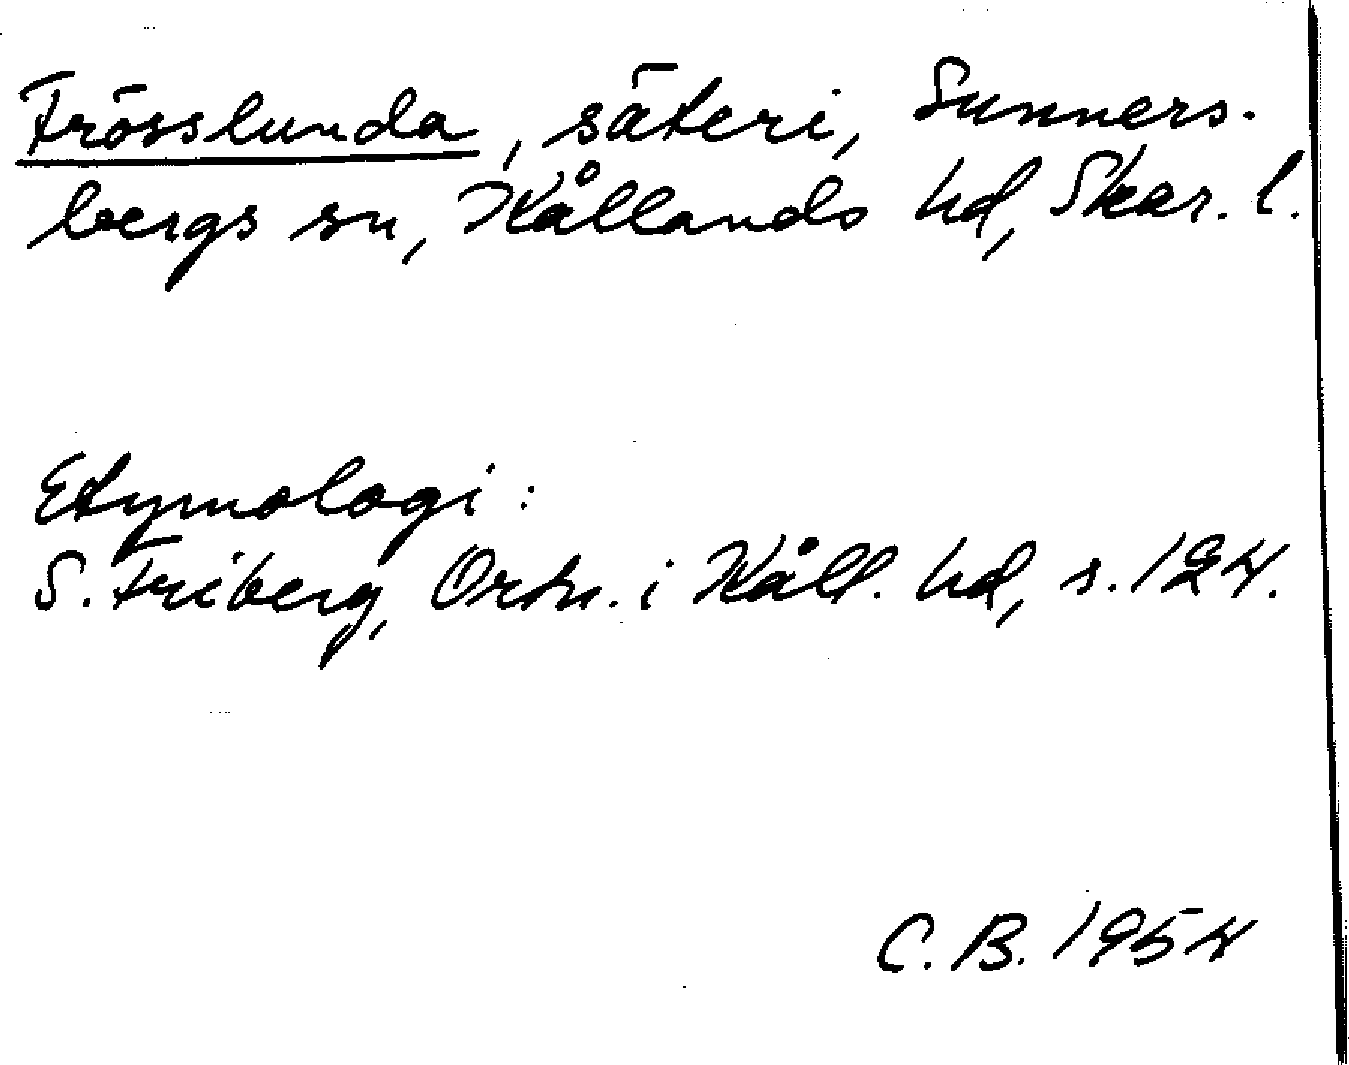 Frösslunda, säteri, Sunners-
bergs sn, Kållands hd, Skar. l.
Etymologi:
S. Friberg, Ortn. i Kåll. hd, s. 124.
C. B. 1954